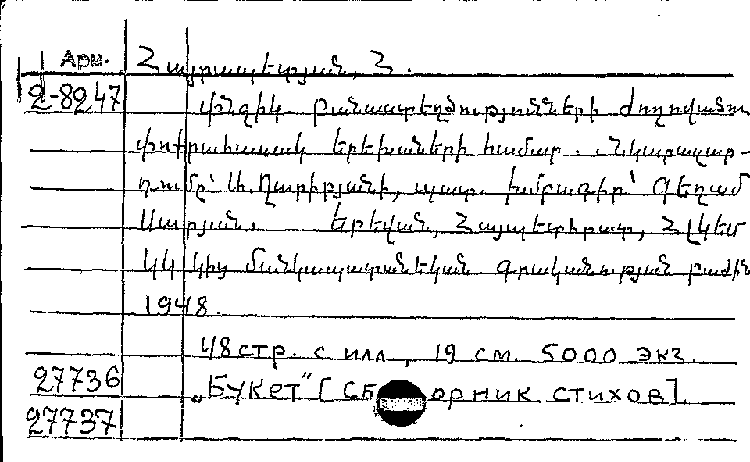 Арм. Հայրապետյան, Հ.
2-8247 Փնջիկ բանաստեղծությունների ժողովածու
փոքրահասակ երեխաների համար. Նկարազար-
դումը՝ Ա. Ղարիբյանի, պատ. խմբագիր՝ Գեղամ
Սարյան. Երեվան, Հայպետհրատ, ՀԼԿԵՄ
ԿԿ կից մանկապատանեկան գրականության բաժին
1948.
48 стр. с илл, 19 см. 5000 экз.
27736 „Букет" [Сборник стихов]
27737